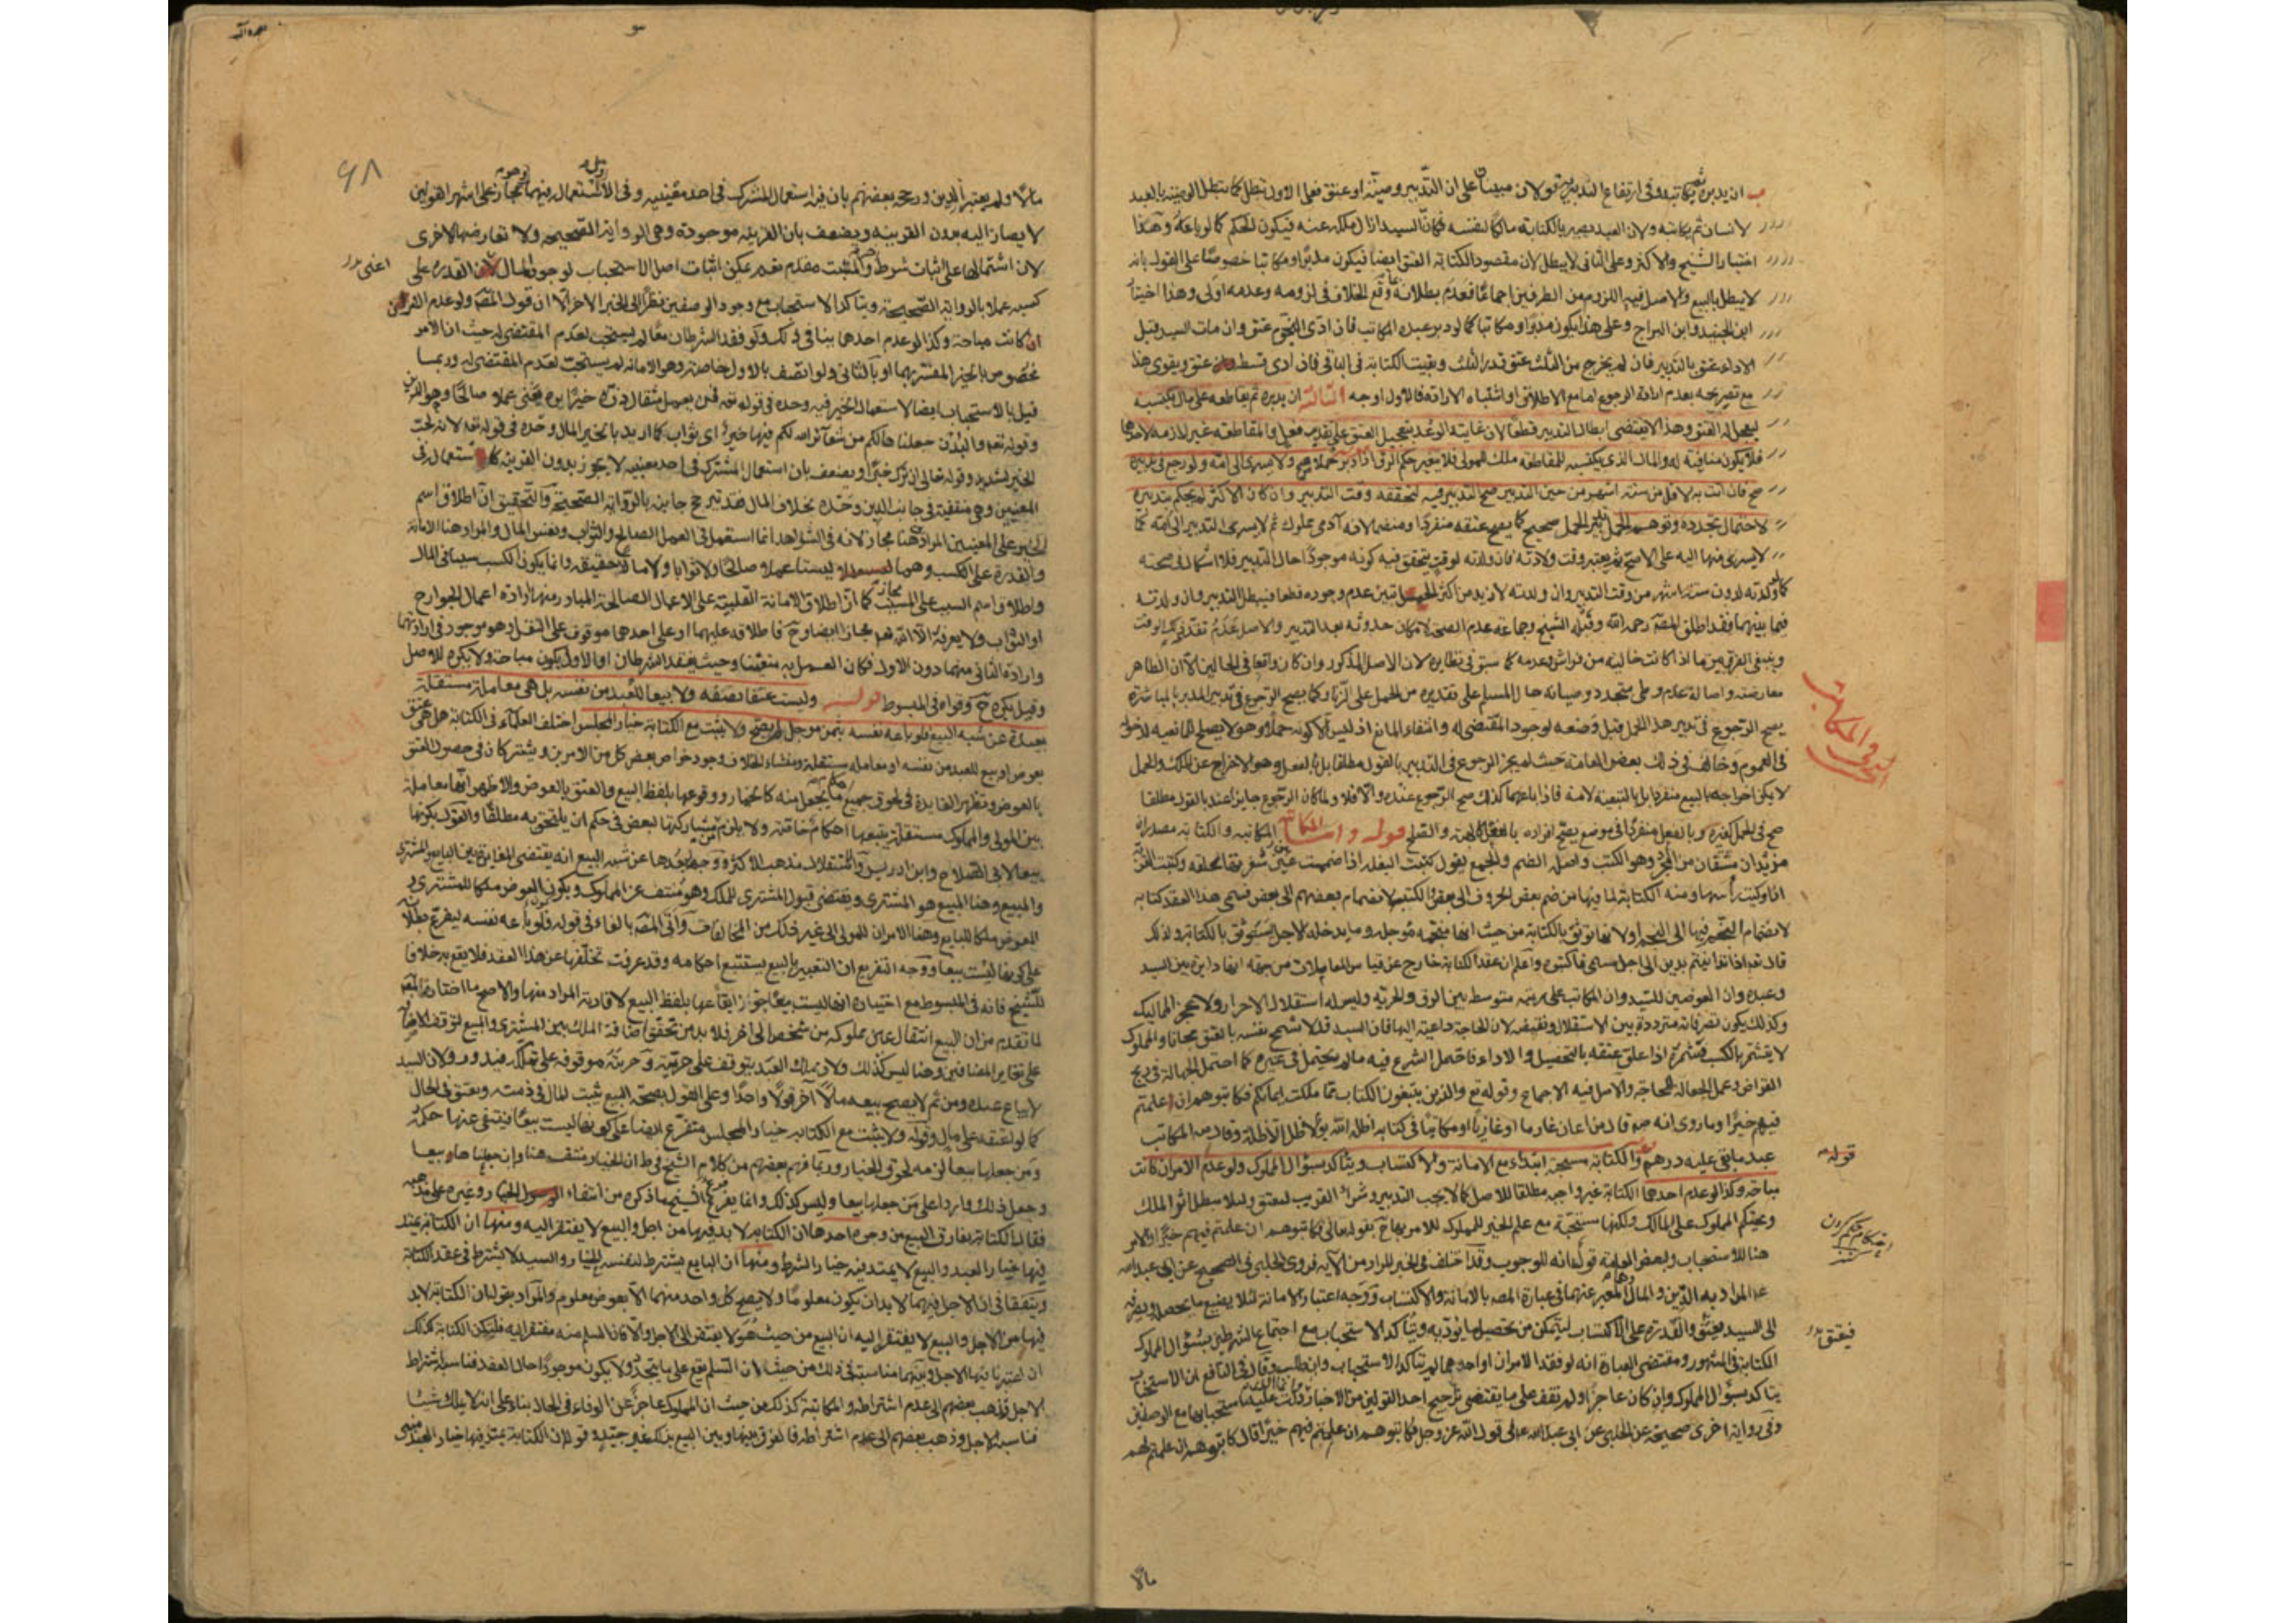 ان يدبره ثم يكاتبه وفى ارتفاع التدبير به قولان مبنيان على ان التدبير وصية او عتق فعلى الاول تبطل كما تبطل الوصية بالعبد
لانسان ثم يكاتبه ولان العبد يصير بالكتابة مالكا لنفسه فكان السيد ازال ملكه عنه فيكون الحكم كما لو باعه وهذا
اختيار الشيخ والاكثر وعلى الثانى لا يبطل لان مقصود الكتابة العتق ايضا فيكون مدبرا ومكاتبا خصوصا على القول بانه
لا يبطل بالبيع والاصل فيه اللزوم من الطرفين وقع الخلاف فى لزومه وعدمه اولى وهذا اختيار
ابن الجنيد وابن البراج وعلى هذا يكون مدبرا ومكاتبا كما لو دبر عبده المكاتب فان ادى النجوم عتق وان مات السيد قبل
الاداء عتق بالتدبير فان لم يخرج من الثلث عتق قدر الثلث وبقيت الكتابة فى الباقى فان ادى قسطه عتق ويقوى هذا
مع تصريحه بعدم ارادة الرجوع اما مع الاطلاق او اشتباه الارادة فالاول اوجه الثالثة ان يدبره ثم يقاطعه على مال يكتسبه
ليعجل له العتق وهذا لا يقتضى ابطال التدبير قطعا لان غايته الوعد بتعجيل العتق على تقدير فعل والمقاطعة غير لازمة لاحدهما
فلا يكون منافية له والمال الذى يكتسبه للمقاطعة ملك للمولى فلا يتغير حكم الرق اذا دبر حملا صح ولا يسرى الى امه ولو رجع فى تدبيره
صح فان اتت به لاقل من ستة اشهر من حين التدبير صح التدبير فيه لتحققه وقت التدبير وان كان الاكثر لم يحكم بتدبيره
لاحتمال تجدده وتوهم الحمل تدبير الحمل صحيح كما يصح عتقه منفردا ومنضما لانه آدمى مملوك ثم لا يسرى التدبير الى امه كما
لا يسرى منها اليه على الاصح ثم يعتبر وقت ولادته فان ولدته لوقت يتحقق فيه كونه موجودا حال التدبير فلا اشكال فى صحته
كما لو ولدته لدون ستة اشهر من وقت التدبير وان ولدته لازيد من اكثر الحمل تبين عدم وجوده قطعا فيبطل التدبير وان ولدته
فيما بينهما فقد اطلق المصه رحمه الله وقبله الشيخ وجماعة عدم الصحة لامكان حدوثه بعد التدبير والاصل عدم تقدمه
وينبغى الفرق بين ما اذا كانت خالية من فراش وعدمه كما سبق فى نظايره لان الاصل المذكور وان كان واقعا فى الحالين الا ان الظاهر
معارضه واصالة عدم وطى متجدد وصيانة حال المسلم على تقديره من الحمل على الزنا وكما يصح الرجوع فى تدبير المدبر بالمباشرة
يصح الرجوع فى تدبير هذا الحمل قبل وضعه لوجود المقتضى له وانتفاء المانع اذ ليس الا كونه حملا وهو لا يصلح للمانعية لدخوله
فى العموم وخالف فى ذلك بعض العامة حيث لم يجز الرجوع فى التدبير بالقول مطلقا بل بالفعل وهو الاخراج عن الملك والحمل
لا يمكن اخراجه بالبيع منفردا بل بالتبعية لامه فاذا باعهما كذلك صح الرجوع عنده والا فلا ولما كان الرجوع جايزا عندنا بالقول مطلقا
صح فى الحمل كغيره وبالفعل منفردا فى موضع يصح افراده بالفعل كالهبة والصلح قوله واما المكاتبة المكاتبة والكتابة مصدران
مزيدان مشتقان من المجرد وهو الكتب واصله الضم والجمع يقول كتبت البغلة اذا ضممت بين شفريها بحلقة وكتبت القربة
اذا اوكيت رأسها ومنه الكتابة لما فيها من ضم بعض الحروف الى بعض والكتيبة لانضمام بعضهم الى بعض فسمى هذا العقد كتابة
لانضمام النجم فيها الى النجم او لانها توثق بالكتابة من حيث انها منجمة مؤجلة وما يدخله الاجل يستوثق بالكتابة ولذلك
قال تعه اذا تداينتم بدين الى اجل مسمى فاكتبوه واعلم ان عقد الكتابة خارج عن قياس المعاملات من جهة انها دايرة بين السيد
وعبده وان العوضين للسيد وان المكاتب على مرتبة متوسطة بين الرق والحرية وليس له استقلال الاحرار ولا عجز المماليك
وكذلك يكون تصرفاته مترددة بين الاستقلال ونقيضه لان الحاجة داعية اليها فان السيد قد لا تسمح نفسه بالعتق مجانا والمملوك
لا يتشمر بالكسب تشمره اذا علق عتقه بالتحصيل والاداء فاحتمل الشرع فيه ما لم يحتمل فى غيره كما احتمل الجهالة فى ربح
القراض وعمل الجعالة للحاجة والاصل فيه الاجماع وقوله تع والذين يبتغون الكتاب مما ملكت ايمانكم فكاتبوهم ان علمتم
فيهم خيرا وما روى انه ص قال من اعان غارما او غازيا او مكاتبا فى كتابته اظله الله يوم لا ظل الا ظله وقال ص المكاتب
عبد ما بقى عليه درهم والكتابة مستحبة ابتداء مع الامانة والاكتساب ويتاكد بسؤال المملوك ولو عدم الامران كانت
مباحة وكذا لو عدم احدهما الكتابة غير واجبة مطلقا للاصل كما لا يجب التدبير وشراء القريب ليعتق ولئلا يبطل اثر الملك
ويحتكم المملوك على المالك ولكنها مستحبة مع علم الخير للمملوك للامر بها ح بقوله تعالى فكاتبوهم ان علمتم فيهم خيرا والامر
هنا للاستحباب ولبعض العامة قول انه للوجوب وقد اختلف فى الخير المراد من الآية فروى الحلبى فى الصحيح عن ابى عبد الله
ع المراد به الدين والمال المعبر عنهما فى عبارة المصه بالامانة والاكتساب ووجه اعتبار الامانة لئلا يضيع ما يحصله ويصرفه
الى السيد فيعتق والقدرة على الاكتساب ليتمكن من تحصيل ما يؤديه ويتأكد الاستحباب مع اجتماع الشرطين بسؤال المملوك
الكتابة فى المشهور ومقتضى العبارة انه لو فقد الامران او احدهما لم يتأكد الاستحباب وان طلب وقال فى النافع ان الاستحباب
يتاكد بسؤال المملوك وان كان عاجزا ولم نقف على ما يقتضى ترجيح احد القولين من الاخبار
وفى رواية اخرى صحيحة عن الحلبى عن ابى عبد الله ع فى قول الله عز وجل فكاتبوهم ان علمتم فيهم خيرا قال كاتبوهم ان علمتم لهم
مالا
قوله
فيعتق
مالا ولم يعتبر الدين ورجحه بعضهم بان فيه استعمال المشترك فى احد معنييه وفى الاول استعماله فيهما وهو مجاز على اشهر القولين
لا يصار اليه بدون القرينة ويضعف بان القرينة موجودة وهى الرواية الصحيحة ولا تعارضها الاخرى
لان اشتمالها على اثبات شرط والمثبت مقدم نعم يمكن اثبات اصل الاستحباب لوجود المال القدرة على
اعنى
كسبه عملا بالرواية الصحيحة ويتاكد الاستحباب مع وجود الوصفين نظرا الى الخبر الاخر الا ان قول المصه ولو عدم الامران
كانت مباحة وكذا لو عدم احدهما ينافى ذلك ولو فقد الشرطان معا لم يستحب لعدم المقتضى له حيث ان الامر
مخصوص بالخير المفسر بهما او بالثانى ولو اتصف بالاول خاصة وهو الامانة لم يستحب لعدم المقتضى له وربما
قيل بالاستحباب ايضا لاستعمال الخير فيه وحده فى قوله تعه فمن يعمل مثقال ذرة خيرا يره يعنى عملا صالحا وهو الدين
وقوله تعه والبدن جعلناها لكم من شعائر الله لكم فيها خير اى ثواب كما اريد بالخير المال وحده فى قوله تعه لانه لحب
الخير لشديد وقوله تعالى ان ترك خيرا ويضعف بان استعمال المشترك فى احد معنييه لا يجوز بدون القرينة كاستعماله فى
المعنيين وهى منتفية فى جانب الدين وحده بخلاف المال فقد ترجح جانبه بالرواية الصحيحة والتحقيق ان اطلاق اسم
الخير على المعنيين المراد هنا مجاز لانه فى الشواهد انما استعمل فى العمل الصالح والثواب ونفس المال والمراد هنا الامانة
والقدرة على الكسب وهما ليستا عملا صالحا ولا ثوابا ولا مالا حقيقة وانما يكون الكسب سببا فى المال
واطلاق اسم السبب على المسبب مجاز كما ان اطلاق الامانة القلبية على الاعمال الصالحة المبادر منها ارادة اعمال الجوارح
وارادة الثانى منهما دون الاول فكان العمل به متعينا وحيث يفقد الشرطان او الاول يكون مباحة ولا يكره للاصل
وقيل يكره ح وقواه فى المبسوط قوله وليست عتقا بصفة ولا بيعا للعبد من نفسه بل هى معاملة مستقلة
بعيدة عن شبه البيع فلو باعه نفسه بثمن مؤجل لم يصح ولا يثبت مع الكتابة خيار المجلس اختلف العلماء فى الكتابة هل هى عتق
بعوض او بيع للعبد من نفسه او معاملة مستقلة ومنشاء الخلاف وجود خواص بعض كل من الامرين ويشتركان فى حصول العتق
بالعوض وتظهر الفايدة فى لحوق جميع احكام ما يجعل منه كالخيار ووقوعها بلفظ البيع والعتق بالعوض والاظهر انها معاملة
بين المولى والمملوك مستقلة يتبعها احكام خاصة ولا يلزم من مشاركتها لبعض فى حكم ان يلتحق به مطلقا والقول بكونها
بيعا لابى الصلاح وابن ادريس والاستقلال مذهب الاكثر ووجه بعدها عن شبه البيع انه يقتضى المغايرة بين البايع والمشترى
والمبيع وهنا المبيع هو المشترى ويقتضى قبول المشترى للملك وهو منتف عن المملوك ويكون العوض ملكا للمشترى و
المعوض ملكا للبايع وهنا الامران للمولى الى غير ذلك من المخالفات واتى المصه بالفاء فى قوله فلو باعه نفسه ليفرع بطلانه
على كونها ليست بيعا ووجه التفريع ان التعبير بالبيع يستتبع احكامه وقد عرفت تخلفها عن هذا العقد فلا يقع به خلافا
للشيخ فانه فى المبسوط مع اختياره انها ليست بيعا جوز ايقاعها بلفظ البيع لافادته المراد منها والاصح ما اختاره المصه
لما تقدم من ان البيع انتقال عين مملوكة من شخص الى اخر فلا بد من تحقق اضافة الملك بين المشترى والمبيع لتوقف الاضافة
على تغاير المضافين وهنا ليس كذلك ولان ملك العبد يتوقف على حريته وحريته موقوفة على تملكه فيدور ولان السيد
لا يبايع عبده ومن ثم لا يصح بيعه مالا آخر قولا واحدا وعلى القول بصحة البيع يثبت المال فى ذمته ويعتق فى الحال
كما لو اعتقه على مال وقوله ولا يثبت مع الكتابة خيار المجلس متفرع ايضا على كونها ليست بيعا فينتفى عنها حكمه
ومن جعلها بيعا لزمه لحوق الخيار وربما فهم بعضهم من كلام الشيخ فى ط ان الخيار منتف هنا وان جعلناها بيعا
وجعل فى ذلك ردا على من جعلها بيعا وليس كذلك وانما يفرع الشيخ ما ذكره من انتفاء الخيار وغيره على مذهبه
فقال الكتابة تفارق البيع من وجوه احدها ان الكتابة لا بد فيها من اجل والبيع لا يفتقر اليه ومنها ان الكتابة يمتد
فيها خيار العبد والبيع لا يمتد فيه خيار الشرط ومنها ان البايع يشترط لنفسه الخيار والسيد لا يشترط فى عقد الكتابة
ويتفقا فى ان الاجل فيهما لا بد ان يكون معلوما ولا يصح كل واحد منهما الا بعوض معلوم والمراد بقوله ان الكتابة لا بد
فيها من الاجل والبيع لا يفتقر اليه ان البيع من حيث هو لا يفتقر الى الاجل والا كان السلم منه مفتقر اليه فليكن الكتابة كذلك
ان اعتبرنا فيها الاجل وبينهما مناسبة فى ذلك من حيث ان السلم يقع على ما يتجدد ولا يكون موجودا حال العقد فناسبه اشتراط
الاجل فذهب بعضهم الى عدم اشتراطه والمكاتبة كذلك من حيث ان المملوك عاجز عن الوفاء فى الحال بناء على انه لا يملك شيئا
فناسبه الاجل وذهب بعضهم الى عدم اشتراطه فالفرق بينها وبين البيع بذلك غير جيد وقوله ان الكتابة يمتد فيها خيار العبد